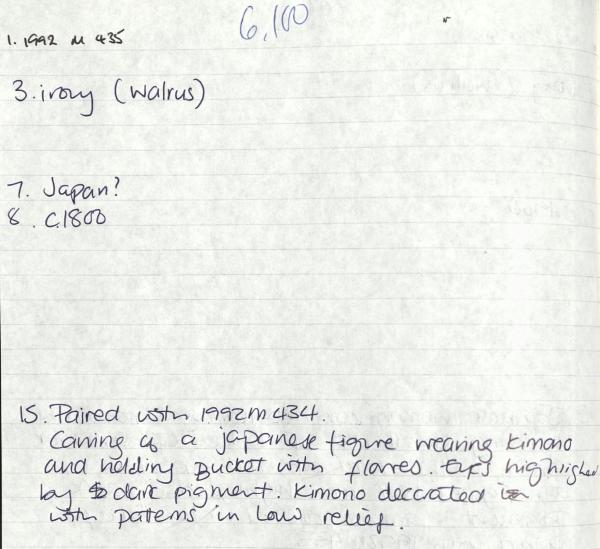 6,100
1. 1992 M 435
3. ivory (walrus)
7. Japan?
8. C.1800
15. Paired with 1992 M 434.
Carving of a japanese figure wearing kimono
and holding Bucket with flowers. highlighted
by dark pigment. Kimono decorated
with patterns in low relief.